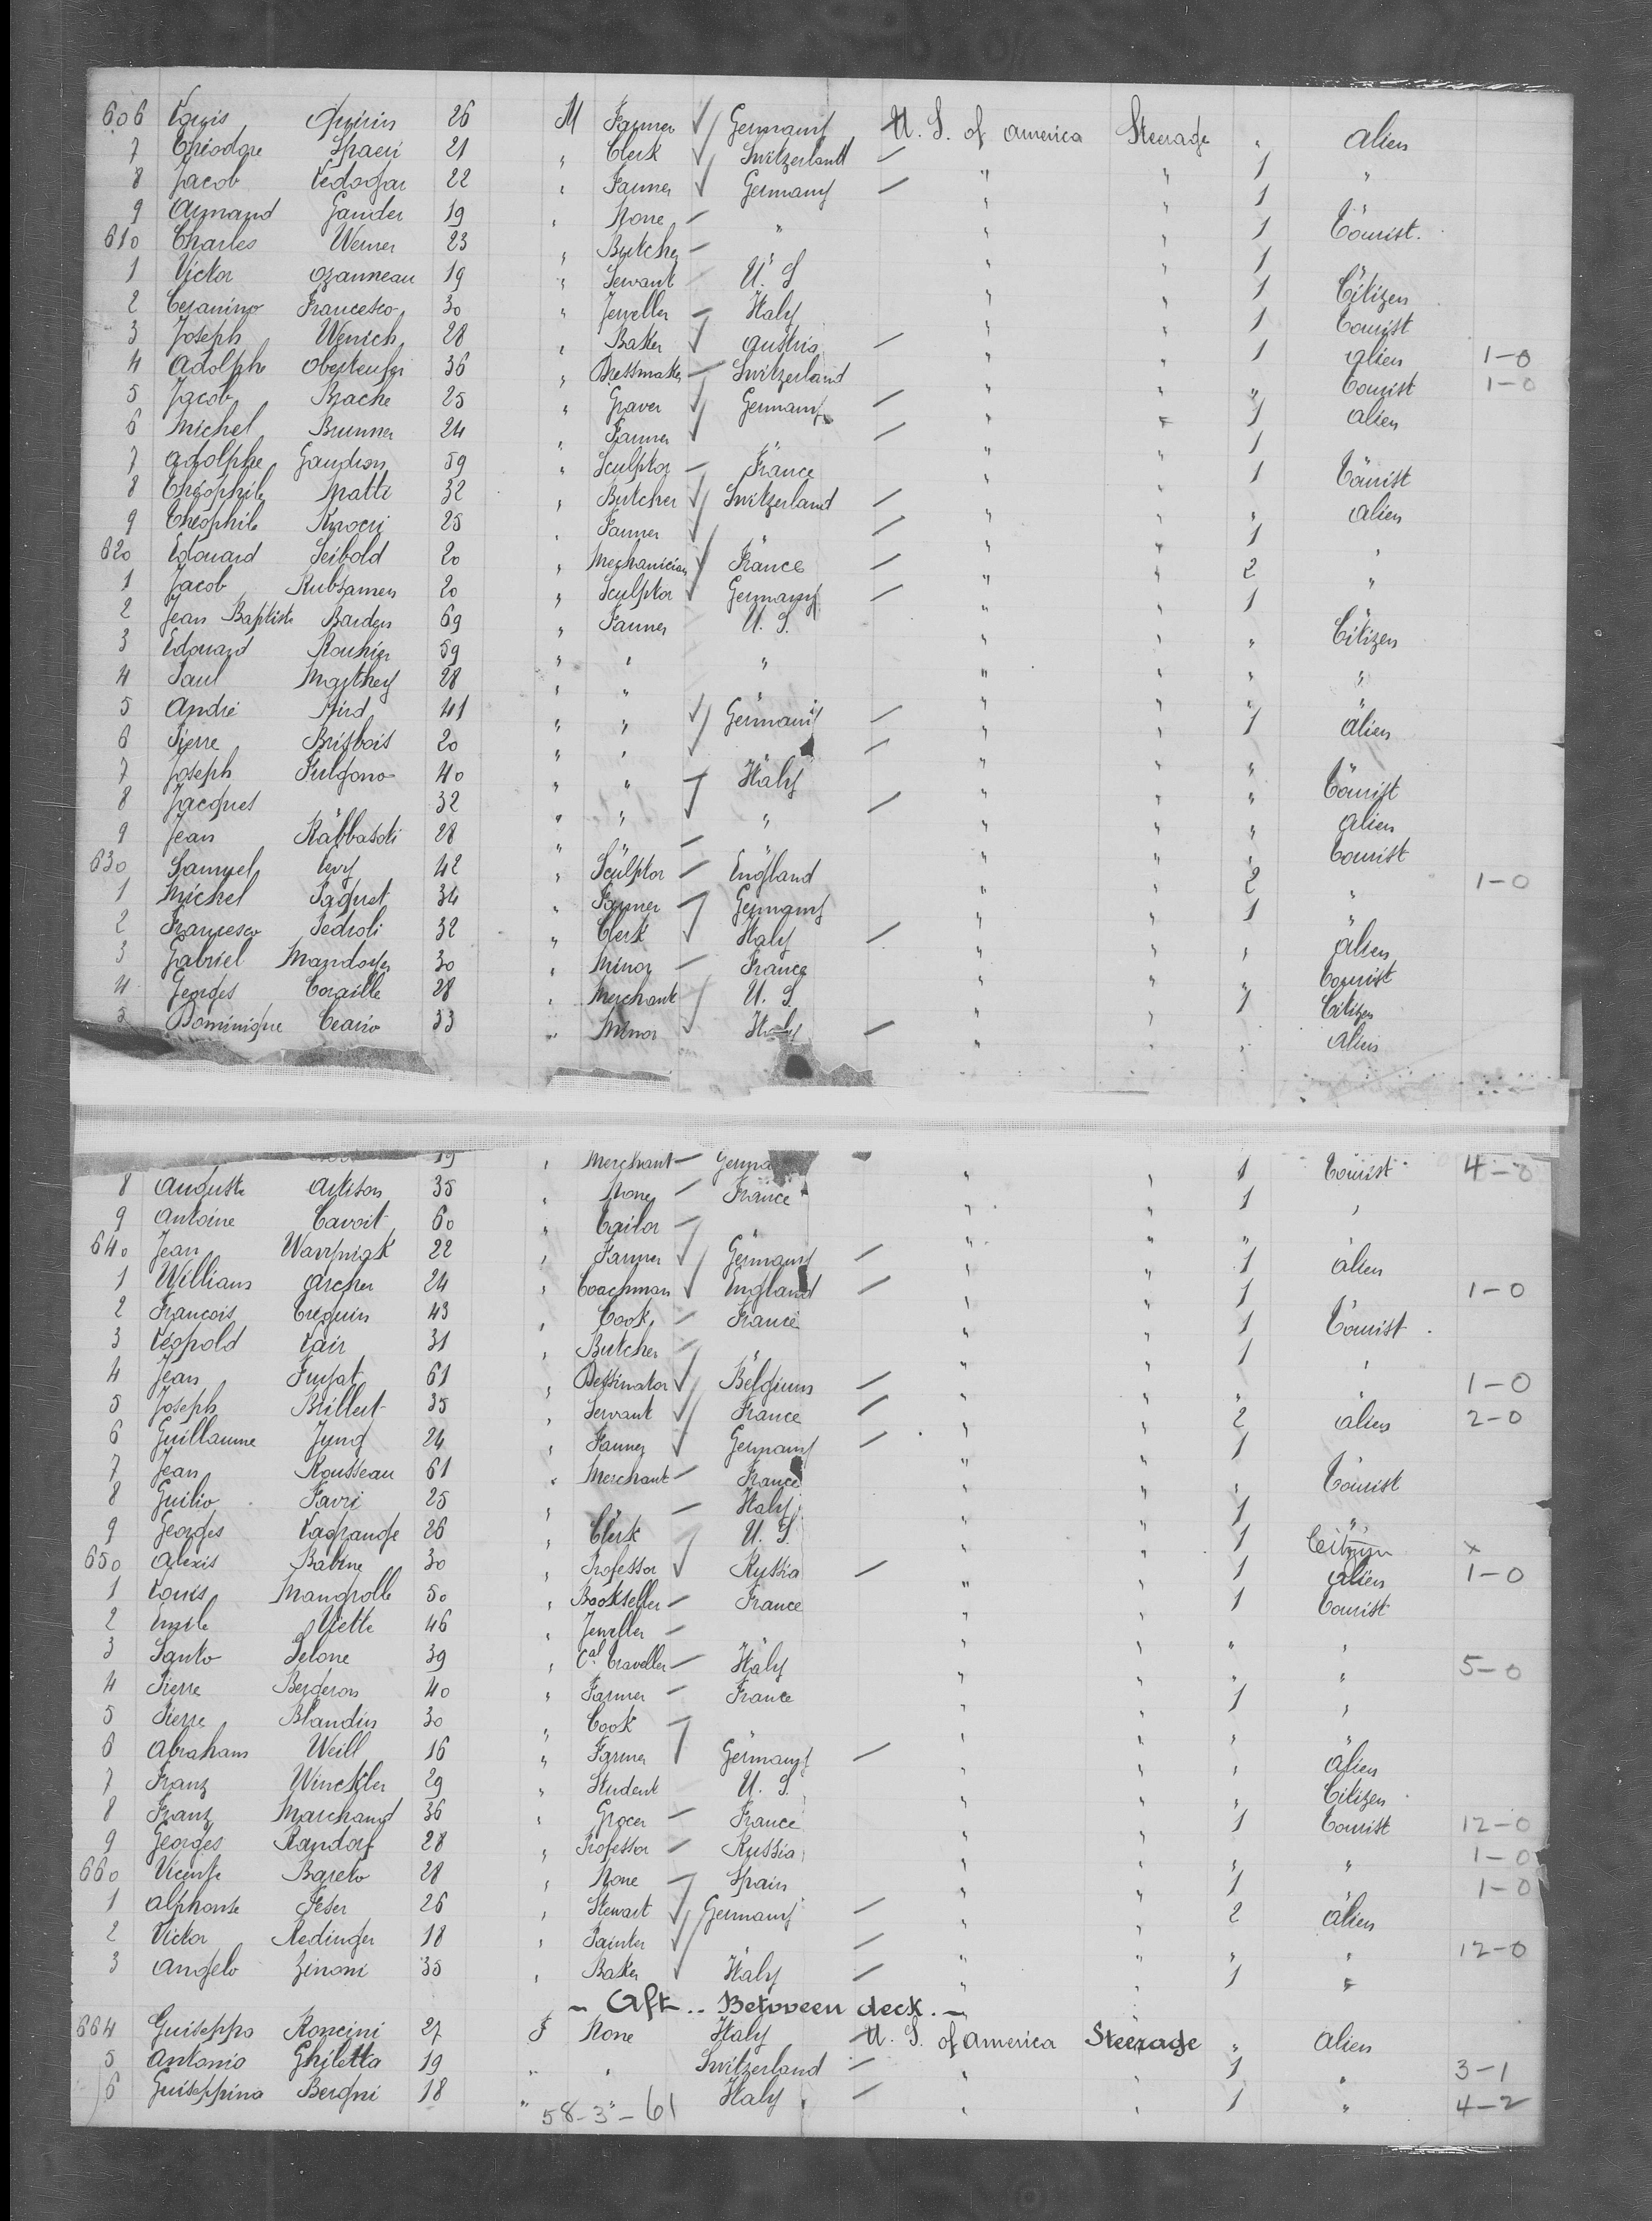 606 Louis Quirin 26 M Farmer Germany U. S. of america Steerage " alien
7 Théodore Spaeri 21 " Clerk Switzerland " " 1 "
8 Jacob 22 " Farmer Germany " " 1
9 Armand Gander 19 " None " " " 1 Tourist.
610 Charles Werner 23 " Butcher " " 1
1 Victor Ozanneau 19 " Servant U. S " " 1 Citizen
2 Francesco 30 " Jeweller Italy " " 1 Tourist
3 Joseph Wenich 28 " Baker austria " " 1 alien 1-0
4 Adolphe 36 " Dressmaker Switzerland " " " Tourist 1-0
5 Jacob Brache 25 " Graver Germany " " 1 alien
6 Michel Brunner 24 " Farmer " " 1
7 adolphe Gaudron 59 " Sculptor France " " 1 Tourist
8 Théophile Matti 32 " Butcher Switzerland " " " alien
9 Théophile 25 " Farmer " " " 1
620 Edouard Seibold 20 " Mechanician France " " 2 "
1 Jacob Rubsamen 20 " Sculptor Germany " " 1 "
2 Jean Baptiste Barden 69 " Farmer U. S. " " " Citizen
3 Edouard Rouhier 59 " " " " " " "
4 Paul Marthey 28 " " " " " " "
5 André Hird 41 " " Germany " " 1 alien
6 Pierre Brisbois 20 " " " " "
7 Joseph Fulgono 40 " " Italy " " " Tourist
8 Jacques 32 " " " " " " alien
9 Jean Rabbasoti 28 " " " " " " Tourist
630 Samuel Levy 42 " Sculptor England " " 2 " 1-0
1 Michel Paquet 34 " Farmer Germany " " 1 "
2 Francesco Pedroli 32 " Clerk Italy " " " alien
3 Gabriel 30 " Minor France " " " Tourist
4 Georges Coraille 28 " Merchant U. S. " " 1 Citizen
5 Dominique Ceario 33 " Minor Italy " " " alien
19 " Merchant " " 1 Tourist 4-0
8 Auguste Artison 35 " None France " " 1 "
9 Antoine Cavoit 60 " Tailor " " " "
640 Jean 22 " Farmer Germany " " 1 alien
1 William Archer 24 " Coachman England " " 1 1-0
2 Francois Creguin 43 " Cook France " " 1 Tourist.
3 Léopold Lair 31 " Butcher " " " 1 "
4 Jean 61 " Dessinator Belgium " " " " 1-0
5 Joseph Brillert 35 " Servant France " " 2 alien 2-0
6 Guillaume Jung 24 " Farmer Germany " " 1
7 Jean Rousseau 61 " Merchant France " " " Tourist
8 Guilio Favri 25 " Italy " " 1 "
9 Georges Lagrange 26 " Clerk U. S. " " 1 Citizen x
650 Alexis Babine 30 " Professor Russia " " 1 alien 1-0
1 Louis Mangrolle 50 " Bookseller France " " 1 Tourist
2 Emile Viette 46 " Jeweller " " " "
3 Santo Pelone 39 " Cal Traveller Italy " " " " 5-0
4 Pierre Bergeron 40 " Farmer France " " 1 "
5 Pierre Blandin 30 " Cook " " " " "
6 Abraham Weill 16 " Farmer Germany " " " alien
7 Franz Winckler 29 " Student U. S. " " " Citizen
8 Franz Marchand 36 " Grocer France " " 1 Tourist 12-0
9 Georges Randorf 28 " Professor Russia " " " " 1-0
660 Vicente Bareto 28 " None Spain " " 1 " 1-0
1 Alphonse Peser 26 " Stewart Germany " " 2 alien
2 Victor Redinger 18 " Painter " " " " " 12-0
3 Angelo Zinoni 35 " Baker Italy " " 1 "
- Aft.. Between deck. -
664 Guiseppo Roncini 27 F None Italy U. S. of america Steerage " alien
5 Antonio Ghiletta 19 " " Switzerland " " 1 " 3-1
6 Guiseppina Bergni 18 " Italy " " 1 " 4-2
58-3-61